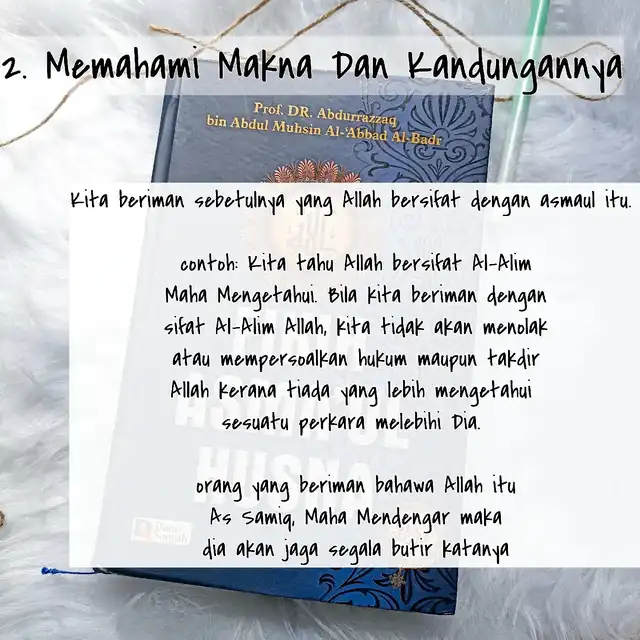 2. Memahami Makna Dan Kandungannya
Prof. DR. Abdurrazzaq
bin Abdul Muhsin Al-'Abbad Al-Badr
Kita beriman sebetulnya yang Allah bersifat dengan asmaul itu.
contoh: Kita tahu Allah bersifat Al-Alim
Maha Mengetahui. Bila kita beriman dengan
sifat Al-Alim Allah, kita tidak akan menolak
atau mempersoalkan hukum maupun takdir
Allah kerana tiada yang lebih mengetahui
sesuatu perkara melebihi Dia.
ASMA'UL
HUSNA
orang yang beriman bahawa Allah itu
As Samiq, Maha Mendengar maka
dia akan jaga segala butir katanya